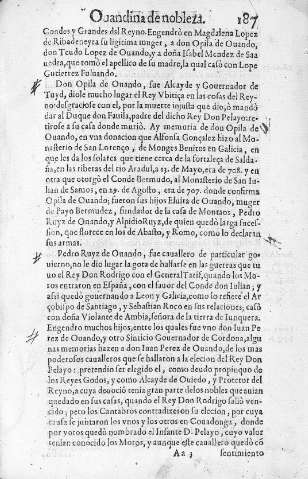 Ovandina de nobleza. 187
Condes y Grandes del Reyno. Engendrò en Magdalena Lopez
de Ribadeneyra su ligitima muger, a don Opila de Ouando,
don Teudo Lopez de Ouando, y a doña Isabel Mendez de Saa
uedra, que tomò el apellico de su madre, la qual casò con Lope
Gutierrez
Don Opila de Ouando, fue Alcayde y Gouernador de
Tuyd, diole mucho lugar el Rey Vbitiça en las cosas del Rey-
no desgraciose con el, por la muerte injusta que dio, ò mandò
dar al Duque don Fauila, padre del dicho Rey Don Pelayo: re-
tirose a su casa donde murio. Ay memoria de don Opila de
Ouando, en vna donacion que Alfonso Gonçalez hizo al Mo-
nasterio de San Lorenço, de Monges Benitos en Galicia, en
que les da los solares que tiene cerca de la fortaleza de Salda-
ña, en las riberas del rio Aradul, a 13. de Mayo, era de 708. y en
otra que otorgò el Conde Bermudo, al Monasterio de San Iu-
lian de Samos, en 29. de Agosto, era de 707. donde confirma
Opila de Ouando; fueron sus hijos Eluira de Ouando, muger
de Payo Bermudez, fundador de la casa de Montaos, Pedro
Ruyz de Ouando, y Alpidio Ruyz, de quien quedò larga suces-
sion, que florece en los de Abasto, y Romo, como lo declaran
sus armas.
Pedro Ruyz de Ouando, fue cauallero de particular go
uierno, no le dio lugar la gota de hallarse en las guerras que tu
uo el Rey Don Rodrigo con el General Tarif, quando los Mo-
ros entraron en España, con el fauor del Conde don Iulian; y
assi quedò gouernando a Leon y Galicia, como lo refiere el Ar
çobispo de Santiago, y Sebastian Roco en sus relaciones, casò
con doña Violante de Ambia, señora de la tierra de Iunquera.
Engendro muchos hijos, entre los quales fue vno don Iuan Pe
rez de Ouando, y otro Sinicio Gouernador de Cordoua, algu
nas memorias hazen a don Iuan Perez de Ouando, de los mas
poderosos caualleros que se hallaron a la elecion del Rey Don
Pelayo: pretendia ser elegido el, como deudo propinquo de
los Reyes Godos, y como Alcayde de Ouiedo, y Protetor del
Reyno, a cuya deuociõ tenia gran parte delos nobles que auian
quedado en sus casas, quando el Rey Don Rodrigo saliò ven-
cido; pero los Cantabros contradizen su elecion, por cuya
causa se juntaron los vnos y los otros en Couadonga, donde
por votos quedò nombrado el Infante D. Pelayo, cuyo valor
tenian conocido los Moros, y aunque este cauallero quedò cõ
Aa 3 sentimiento